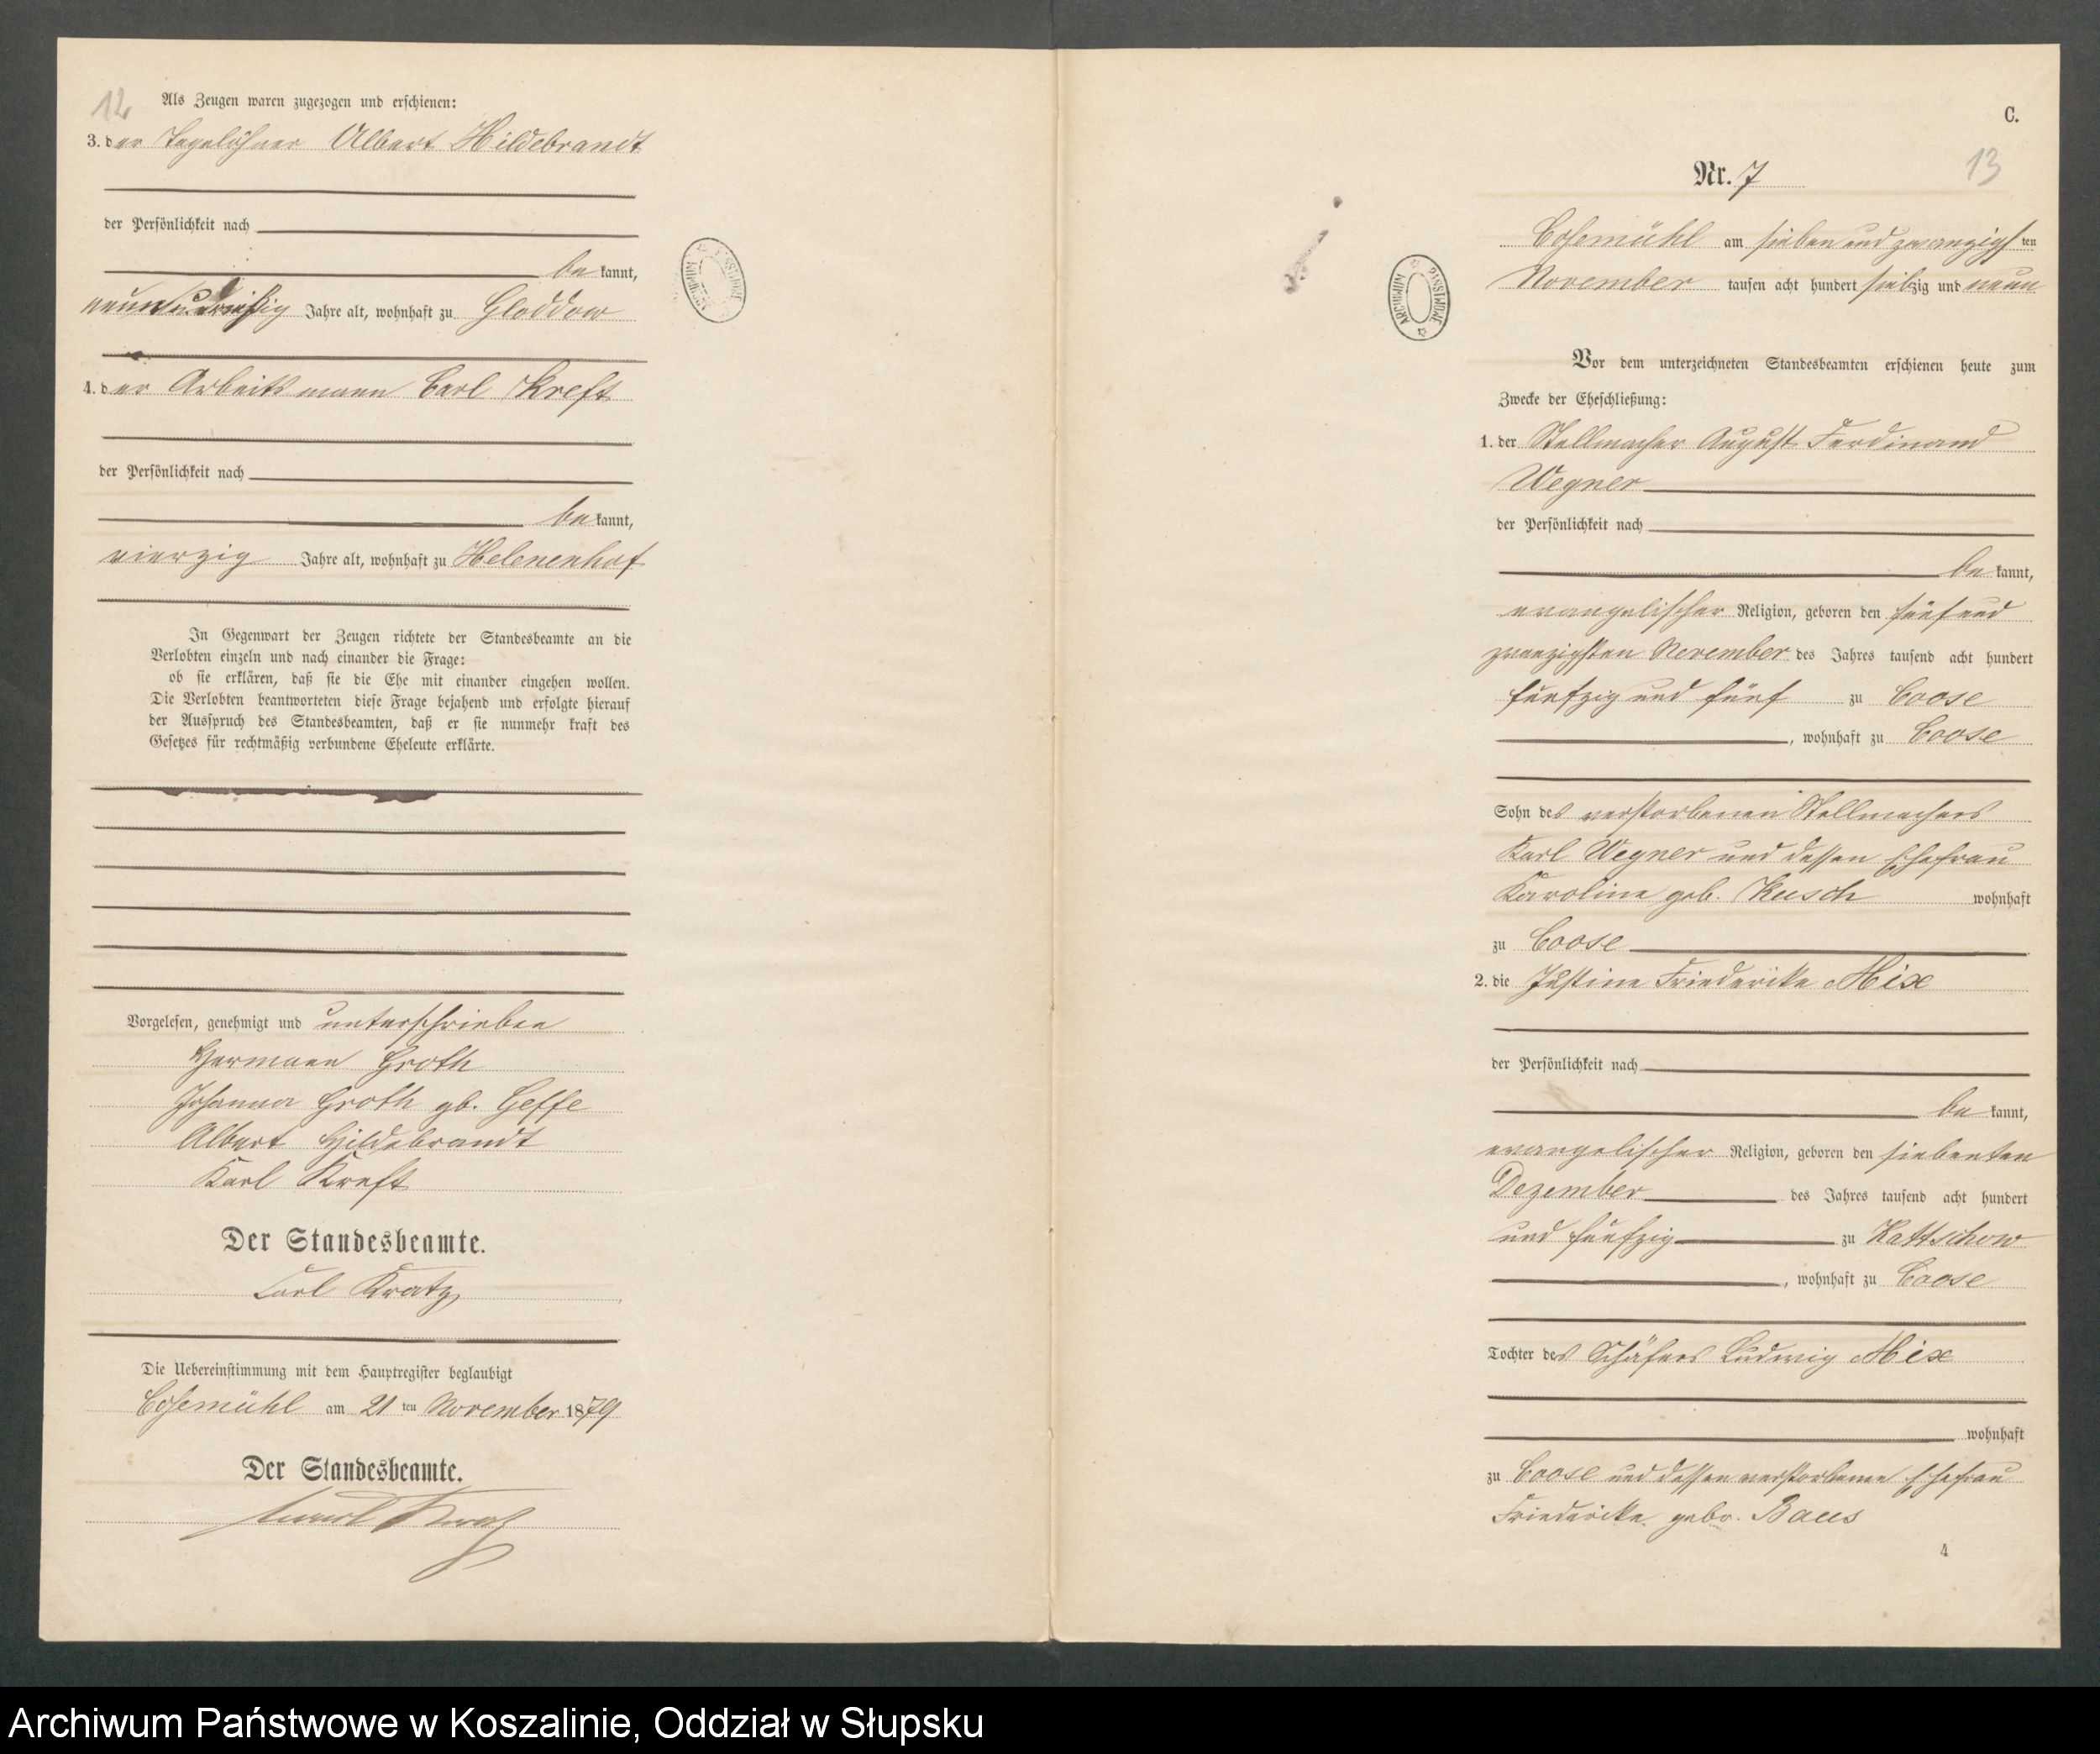 12
Als Zeugen waren zugezogen und erschienen:
3. der Tagelöhner Albert Hildebrandt
der Persönlichkeit nach
bekannt,
neununddreißig Jahre alt, wohnhaft zu Gloddow
4. der Arbeitsmann Carl Kreft
der Persönlichkeit nach
bekannt,
vierzig Jahre alt, wohnhaft zu Helenenhof
In Gegenwart der Zeugen richtete der Standesbeamte an die
Verlobten einzeln und nach einander die Frage:
ob sie erklären, daß sie die Ehe mit einander eingehen wollen.
Die Verlobten beantworteten diese Frage bejahend und erfolgte hierauf
der Ausspruch des Standesbeamten, daß er sie nunmehr kraft des
Gesetzes für rechtmäßig verbundene Eheleute erklärte.
Vorgelesen, genehmigt und unterschrieben
Hermann Groth
Johanna Groth gb. Geffe
Albert Hildebrandt
Karl Kreft
Der Standesbeamte.
Carl Kratz
Die Uebereinstimmung mit dem Hauptregister beglaubigt
Cosemühl am 21 ten November 1879
Der Standesbeamte.
Kratz
ARCHIWUM PAŃSTWOWE
C.
13
Nr. 7
Cosemühl am sieben und zwanzigsten
November tausen acht hundert siebzig und neun
ARCHIWUM PAŃSTWOWE
Vor dem unterzeichneten Standesbeamten erschienen heute zum
Zwecke der Eheschließung:
1. der Stellmacher August Ferdinand
Wegner
der Persönlichkeit nach
bekannt,
evangelischer Religion, geboren den fünf und
zwanzigsten November des Jahres tausend acht hundert
fünfzig und fünf zu Coose
, wohnhaft zu Coose
Sohn des verstorbenen Stellmachers
Karl Wegner und dessen Ehefrau
Karoline geb. Kusch wohnhaft
zu Coose
2. die Justine Friederike Mix
der Persönlichkeit nach
bekannt,
evangelischer Religion, geboren den siebenten
Dezember des Jahres tausend acht hundert
und fünfzig zu Kattschow
, wohnhaft zu Coose
Tochter des Schäfers Ludwig Mix
wohnhaft
zu Coose und dessen verstorbenen Ehefrau
Friederike gebr. Baus
4
Archiwum Państwowe w Koszalinie, Oddział w Słupsku